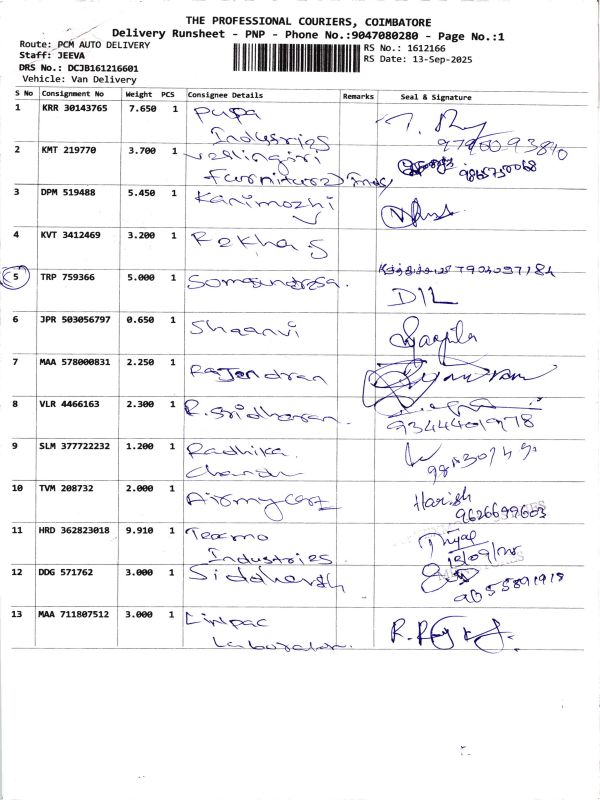 THE PROFESSIONAL COURIERS, COIMBATORE
Delivery Runsheet - PNP - Phone No.:9047080280 - Page No.:1
Route: PCM AUTO DELIVERY
Staff: JEEVA
DRS No.: DCJB161216601
Vehicle: Van Delivery
RS No.: 1612166
RS Date: 13-Sep-2025
S No Consignment No Weight PCS Consignee Details Remarks Seal & Signature
1 KRR 30143765 7.650 1 Pupa
Industries
2 KMT 219770 3.700 1 Vellingiri
Furnitures 9865750068
3 DPM 519488 5.450 1 Kanimozhi
4 KVT 3412469 3.200 1 Rekha S
5 TRP 759366 5.000 1
DIL
6 JPR 503056797 0.650 1 Shaanvi
7 MAA 578000831 2.250 1 Rajendran
8 VLR 4466163 2.300 1 R. Sridharan
9344401978
9 SLM 377722232 1.200 1 Radhika
10 TVM 208732 2.000 1 Harish
9626699603
11 HRD 362823018 9.910 1 Texmo
Industries
12 DDG 571762 3.000 1 Siddharth
9655891918
13 MAA 711807512 3.000 1 Linpac